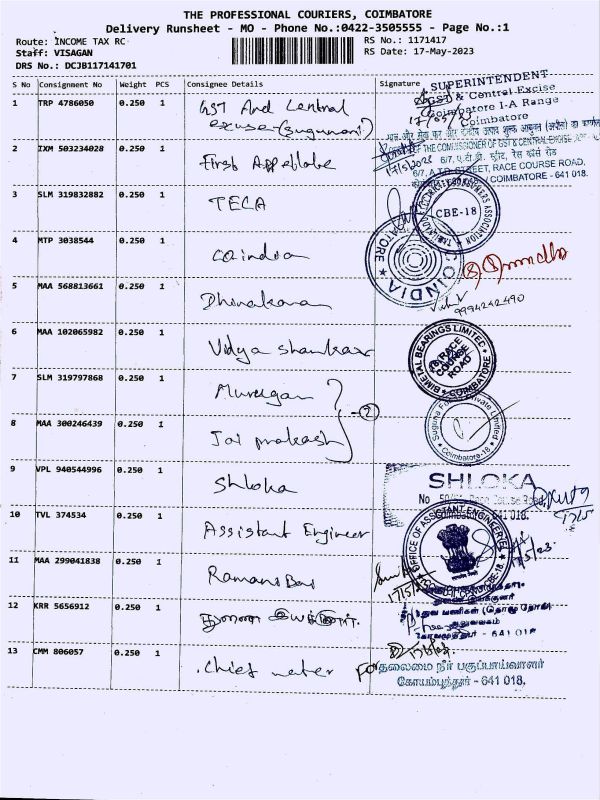 THE PROFESSIONAL COURIERS, COIMBATORE
Delivery Runsheet - MO - Phone No.:0422-3505555 - Page No.:1
Route: INCOME TAX RC
RS No.: 1171417
Staff: VISAGAN
RS Date: 17-May-2023
DRS No.: DCJB117141701
S No Consignment No Weight PCS Consignee Details Signature
1 TRP 4786050 0.250 1 GST And Central
SUPERINTENDENT
GST & Central Excise
Coimbatore I-A Range
Coimbatore
2 IXM 503234028 0.250 1 First Appellate
OF THE COMMISSIONER OF GST & CENTRAL EXCISE
6/7, ए.टी.डी. स्ट्रीट, रेस कोर्स रोड
6/7, A.T.D. STREET, RACE COURSE ROAD,
COIMBATORE - 641 018.
3 SLM 319832882 0.250 1 TECA
CBE-18
4 MTP 3038544 0.250 1 Coindia
COINDIA
5 MAA 568813661 0.250 1 Dhinakaran
9994242490
6 MAA 102065982 0.250 1 Vidya Shankar
BIMETAL BEARINGS LIMITED
RACE COURSE ROAD
COIMBATORE
7 SLM 319797868 0.250 1 Murugan
2
8 MAA 300246439 0.250 1 Jai prakash
Private Limited
Coimbatore-18
9 VPL 940544996 0.250 1 Shloka
SHLOKA
No Race Course Road,
641 018.
10 TVL 374534 0.250 1 Assistant Engineer
OFFICE OF ASSISTANT ENGINEER
CBE-18
11 MAA 299041838 0.250 1
12 KRR 5656912 0.250 1 துணை இயக்குனர்
துணை இயக்குனர்
அலுவலகம்
கோயமுத்தூர் - 641 018
13 CMM 806057 0.250 1 Chief water
தலைமை நீர் பகுப்பாய்வாளர்
கோயம்புத்தூர் - 641 018.